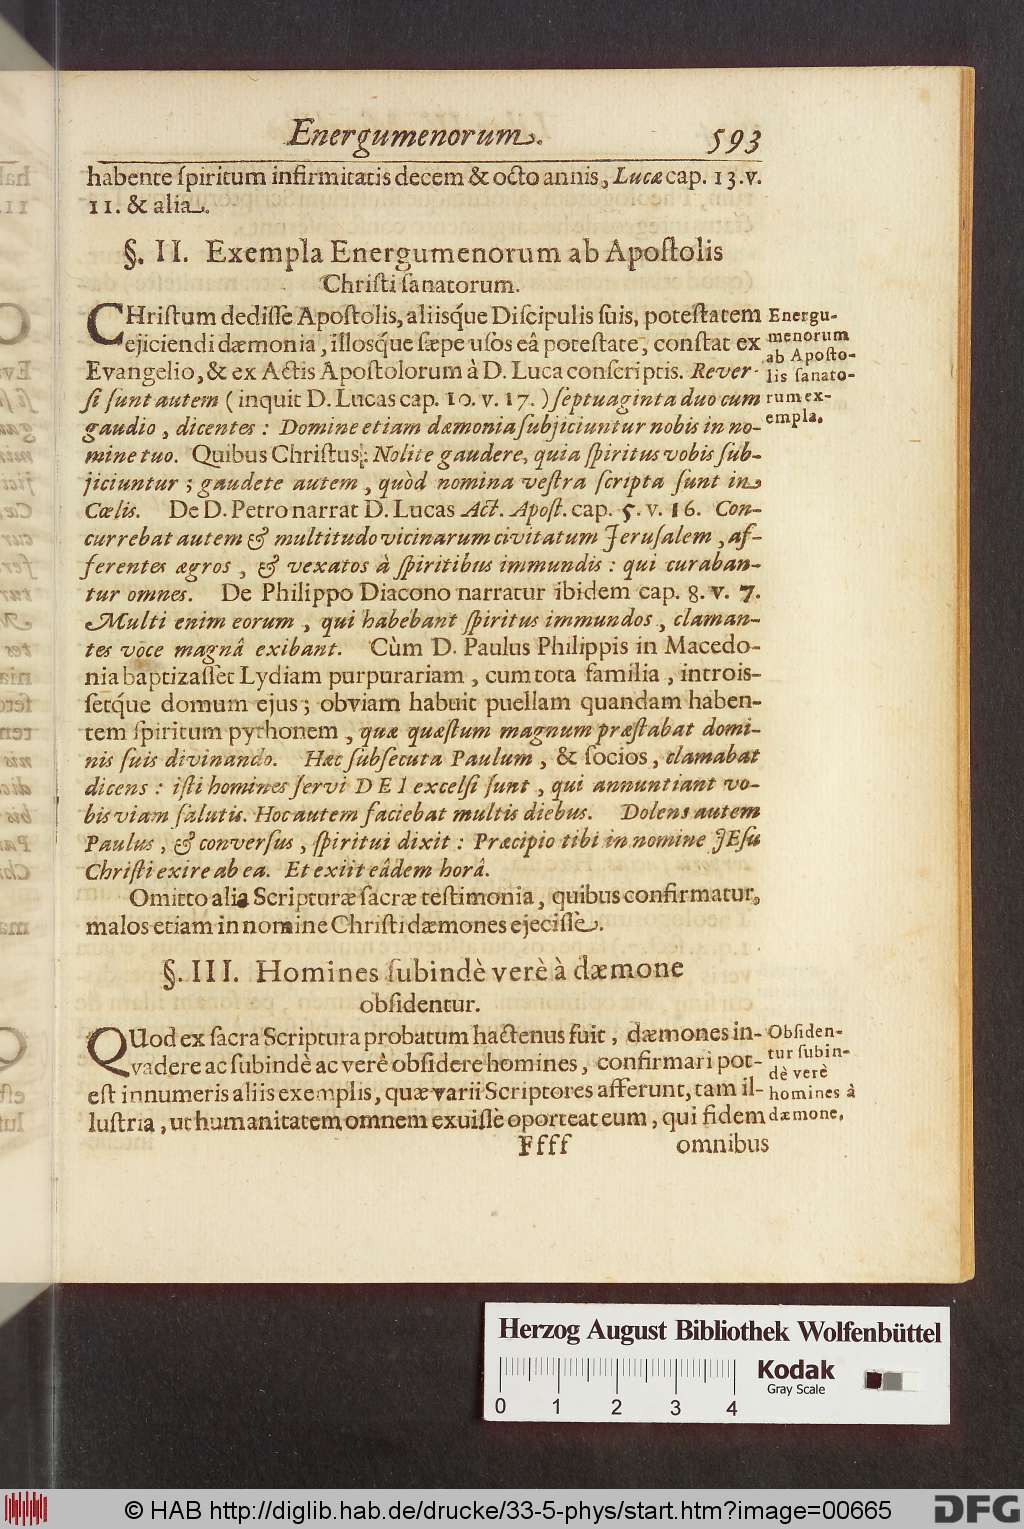 Energumenorum. 593
habente ſpiritum infirmitatis decem & octo annis, Lucæ cap. 13. v.
11. & alia.
§. II. Exempla Energumenorum ab Apoſtolis
Chriſti ſanatorum.
CHriſtum dediſſe Apoſtolis, aliisq́ue Diſcipulis ſuis, poteſtatem
ejiciendi dæmonia, illosq́ue ſæpe uſos eâ poteſtate, conſtat ex
Evangelio, & ex Actis Apoſtolorum à D. Luca conſcriptis. Rever-
ſi ſunt autem (inquit D. Lucas cap. 10. v. 17.) ſeptuaginta duo cum
gaudio, dicentes: Domine etiam dæmonia ſubjiciuntur nobis in no-
mine tuo. Quibus Chriſtus: Nolite gaudere, quia ſpiritus vobis ſub-
jiciuntur; gaudete autem, quòd nomina veſtra ſcripta ſunt in
Cœlis. De D. Petro narrat D. Lucas Act. Apoſt. cap. 5. v. 16. Con-
currebat autem & multitudo vicinarum civitatum Jeruſalem, af-
ferentes ægros, & vexatos à ſpiritibus immundis: qui curaban-
tur omnes. De Philippo Diacono narratur ibidem cap. 8. v. 7.
Multi enim eorum, qui habebant ſpiritus immundos, claman-
tes voce magnâ exibant. Cùm D. Paulus Philippis in Macedo-
nia baptizaſſet Lydiam purpurariam, cum tota familia, introiſ-
ſetq́ue domum ejus; obviam habuit puellam quandam haben-
tem ſpiritum pythonem, quæ quæſtum magnum præſtabat domi-
nis ſuis divinando. Hæc ſubſecuta Paulum, & ſocios, clamabat
dicens: iſti homines ſervi DEI excelſi ſunt, qui annuntiant vo-
bis viam ſalutis. Hoc autem faciebat multis diebus. Dolens autem
Paulus, & converſus, ſpiritui dixit: Præcipio tibi in nomine JEſu
Chriſti exire ab ea. Et exiit eâdem horâ.
Omitto alia Scripturæ ſacræ teſtimonia, quibus confirmatur,
malos etiam in nomine Chriſti dæmones ejeciſſe.
§. III. Homines ſubindè verè à dæmone
obſidentur.
QUod ex ſacra Scriptura probatum hactenus fuit, dæmones in-
vadere ac ſubindè ac verè obſidere homines, confirmari pot-
eſt innumeris aliis exemplis, quæ varii Scriptores afferunt, tam il-
luſtria, ut humanitatem omnem exuiſſe oporteat eum, qui fidem
Ffff omnibus
Energu-
menorum
ab Apoſto-
lis ſanato-
rum ex-
empla.
Obſiden-
tur ſubin-
dè verè
homines à
dæmone.
Herzog August Bibliothek Wolfenbüttel
Kodak
Gray Scale
0 1 2 3 4
© HAB http://diglib.hab.de/drucke/33-5-phys/start.htm?image=00665
DFG